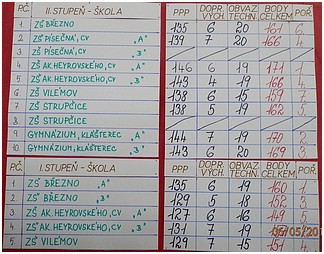 PČ. II. STUPEŇ - ŠKOLA PPP DOPR. VÝCH. OBVAZ. TECHN. BODY CELKEM POŘ.
1 ZŠ BŘEZNO 135 6 20 161 6.
2 ZŠ PÍSEČNÁ, CV "A" 139 7 20 166 4.
3 ZŠ PÍSEČNÁ, CV "B"
4 ZŠ AK. HEYROVSKÉHO, CV "A" 146 6 19 171 1.
5 ZŠ AK. HEYROVSKÉHO, CV "B" 143 4 19 166
6 ZŠ VILÉMOV 138 6 15 159 7.
7 ZŠ STRUPČICE 138 5 19 162 5.
8 ZŠ STRUPČICE
9 GYMNÁZIUM, KLÁŠTEREC "A" 144 7 19 170 2.
10 GYMNÁZIUM, KLÁŠTEREC "B" 143 6 20 169 3.
PČ. I. STUPEŇ - ŠKOLA PPP DOPR. VÝCH. OBVAZ. TECHN. BODY CELKEM POŘ.
1 ZŠ BŘEZNO "A" 135 6 19 160 1.
2 ZŠ BŘEZNO "B" 129 5 18 152 3.
3 ZŠ AK. HEYROVSKÉHO, CV "A" 127 6 16 149 5.
4 ZŠ AK. HEYROVSKÉHO, CV "B" 131 7 19
5 ZŠ VILÉMOV 129 7 15 151 4.
05/05/20